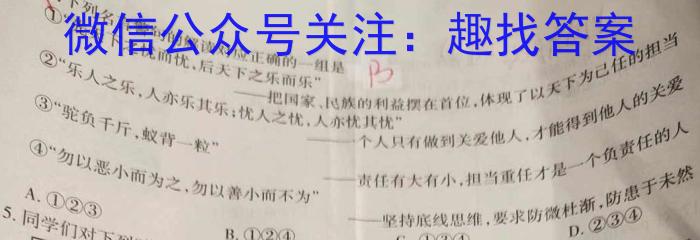 微信公众号关注：趣找答案
下列名
解读对应正确的一组是
①
忧而忧，后天下之乐而乐”
B
——把国家、民族的利益摆在首位，体现了以天下为己任的担当
②“乐人之乐，人亦乐其乐；忧人之忧，人亦忧其忧”
——一个人只有做到关爱他人，才能得到他人的关爱
③“驼负千斤，蚁背一粒”
——责任有大有小，担当重任才是一个负责任的人
④“勿以恶小而为之，勿以善小而不为”
——坚持底线思维，要求防微杜渐，防患于未然
A. ①②③
B. ①②④
C. ①③④
D. ②③④
5. 同学们对下列